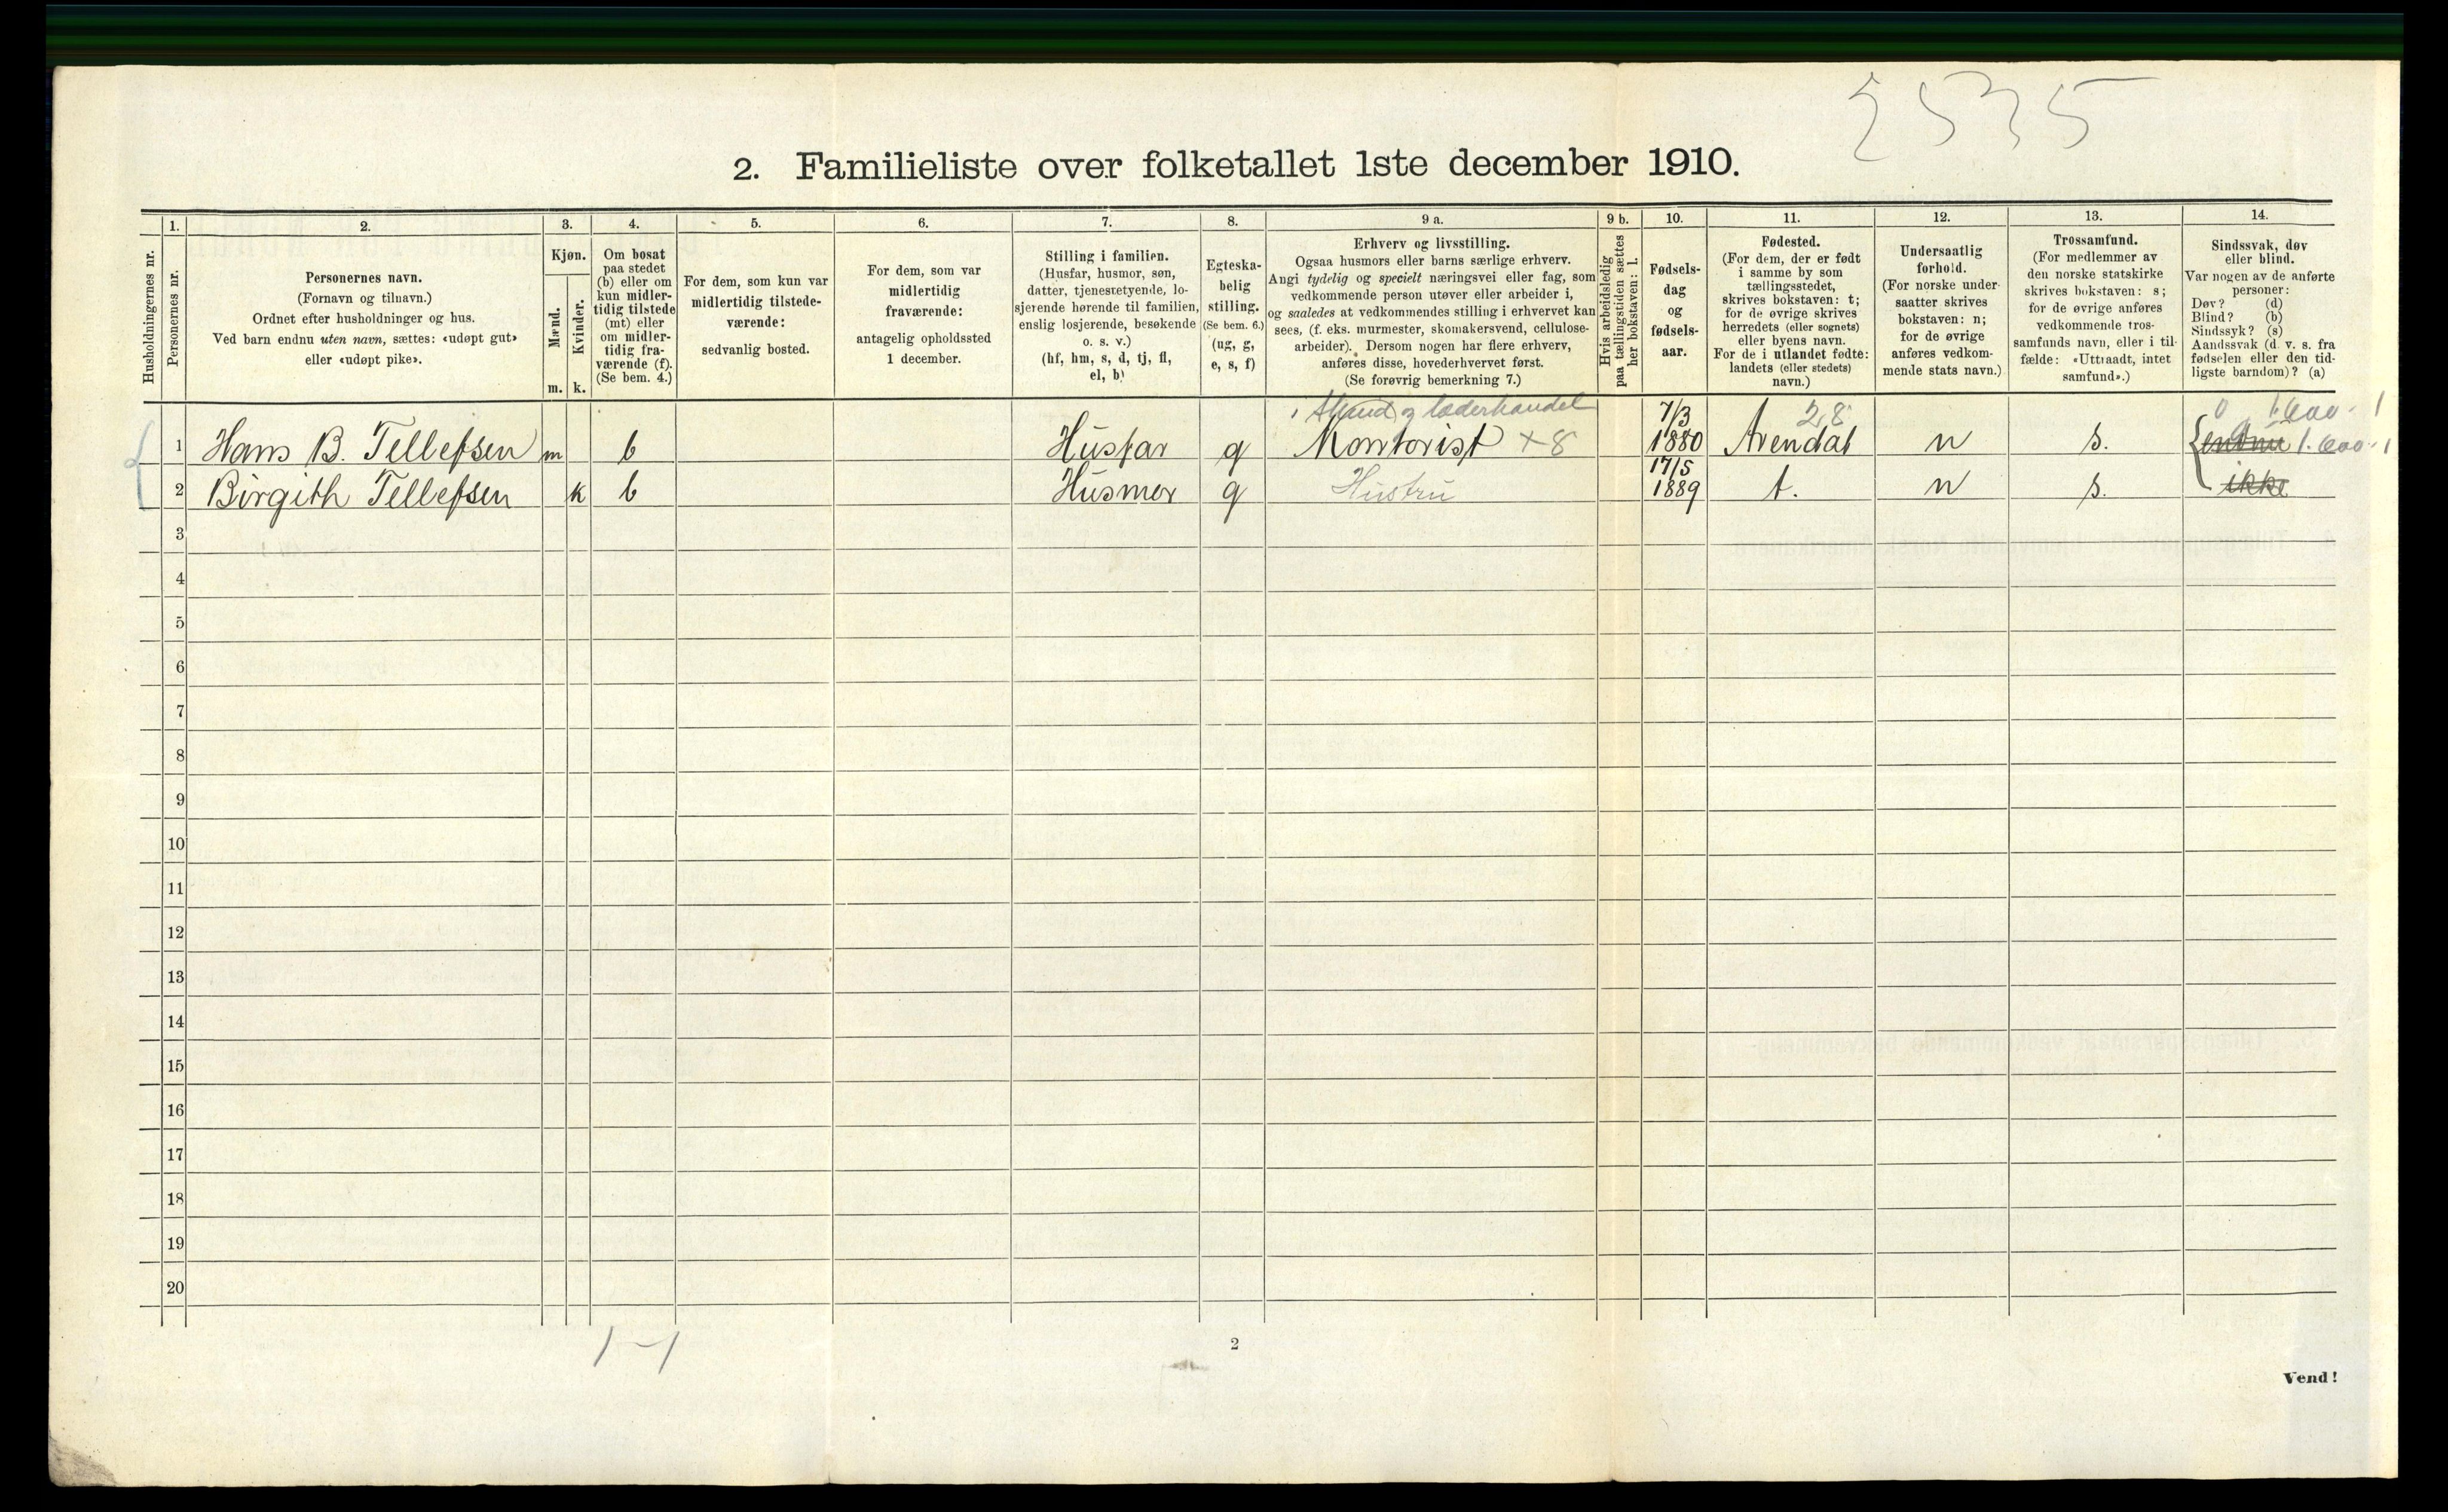 2535
2. Familieliste over folketallet 1ste december 1910.
Husholdningernes nr.
1.
Personernes nr.
2.
Personernes navn.
(Fornavn og tilnavn.)
Ordnet efter husholdninger og hus.
Ved barn endnu uten navn, sættes: «udøpt gut»
eller «udøpt pike».
3.
Kjøn.
Mænd.
m.
Kvinder.
k.
4.
Om bosat
paa stedet
(b) eller om
kun midler-
tidig tilstede
(mt) eller
om midler-
tidig fra-
værende (f).
(Se bem. 4.)
5.
For dem, som kun var
midlertidig tilstede-
værende:
sedvanlig bosted.
6.
For dem, som var
midlertidig
fraværende:
antagelig opholdssted
1 december.
7.
Stilling i familien.
(Husfar, husmor, søn,
datter, tjenestetyende, lo-
sjerende hørende til familien,
enslig losjerende, besøkende
o. s. v.)
(hf, hm, s, d, tj, fl,
el, b)
8.
Egteska-
belig
stilling.
(Se bem. 6.)
(ug, g,
e, s, f)
9 a.
Erhverv og livsstilling.
Ogsaa husmors eller barns særlige erhverv.
Angi tydelig og specielt næringsvei eller fag, som
vedkommende person utøver eller arbeider i,
og saaledes at vedkommendes stilling i erhvervet kan
sees, (f. eks. murmester, skomakersvend, cellulose-
arbeider). Dersom nogen har flere erhverv,
anføres disse, hovederhvervet først.
(Se forøvrig bemerkning 7.)
9 b.
Hvis arbeidsledig
paa tællingstiden sættes
her bokstaven: l.
10.
Fødsels-
dag
og
fødsels-
aar.
11.
Fødested.
(For dem, der er født
i samme by som
tællingsstedet,
skrives bokstaven: t;
for de øvrige skrives
herredets (eller sognets)
eller byens navn.
For de i utlandet fødte:
landets (eller stedets)
navn.)
12.
Undersaatlig
forhold.
(For norske under-
saatter skrives
bokstaven: n;
for de øvrige
anføres vedkom-
mende stats navn.)
13.
Trossamfund.
(For medlemmer av
den norske statskirke
skrives bokstaven: s;
for de øvrige anføres
vedkommende tros-
samfunds navn, eller i til-
fælde: «Uttraadt, intet
samfund».)
14.
Sindssvak, døv
eller blind.
Var nogen av de anførte
personer:
Døv? (d)
Blind? (b)
Sindssyk? (s)
Aandssvak (d. v. s. fra
fødselen eller den tid-
ligste barndom)? (a)
læderhandel 7/3 28
1 Hans B. Tellefsen m b Husfar g Kontorist +8 1880 Arendal n s. endnu
17/5
2 Birgith Tellefsen k b Husmor g Hustru 1889 t. n s. ikke
3
4
5
6
7
8
9
10
11
12
13
14
15
16
17
18
19
20
1-1
2
Vend!